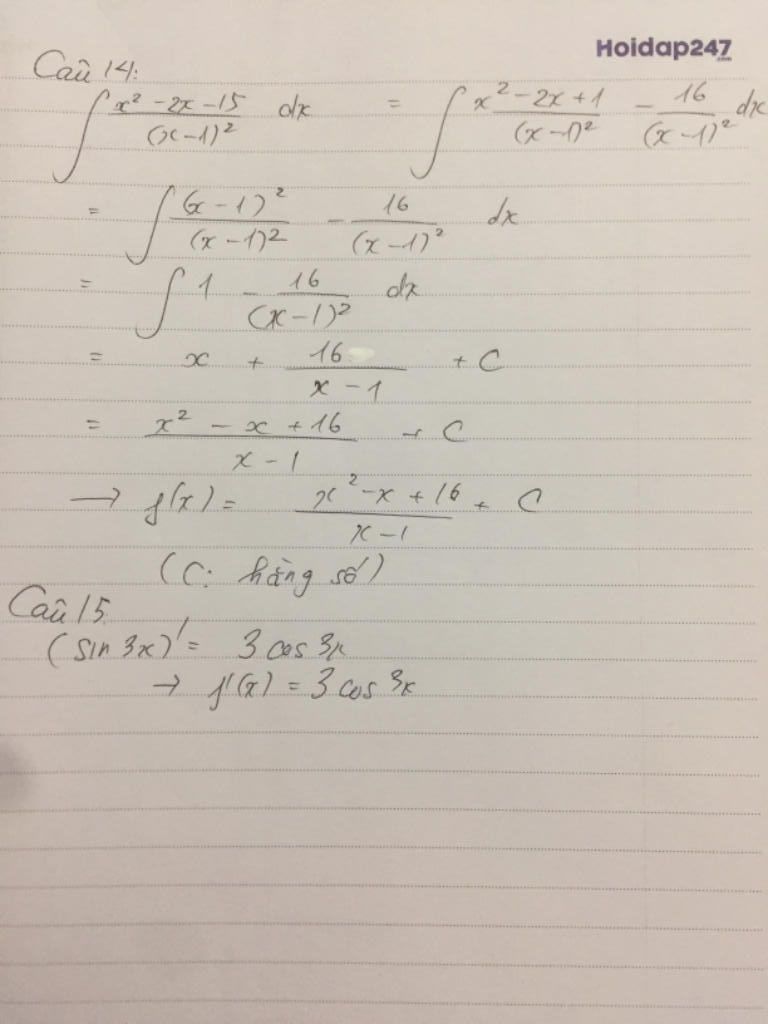 Hoidap247
.com
Câu 14:
∫ (x² - 2x - 15)/((x-1)²) dx = ∫ (x² - 2x + 1)/((x-1)²) - 16/((x-1)²) dx
= ∫ ((x-1)²)/((x-1)²) - 16/((x-1)²) dx
= ∫ 1 - 16/((x-1)²) dx
= x + 16/(x-1) + C
= (x² - x + 16)/(x-1) + C
→ f(x) = (x² - x + 16)/(x-1) + C
(C: hằng số)
Câu 15.
(sin 3x)' = 3 cos 3x
→ f'(x) = 3 cos 3x